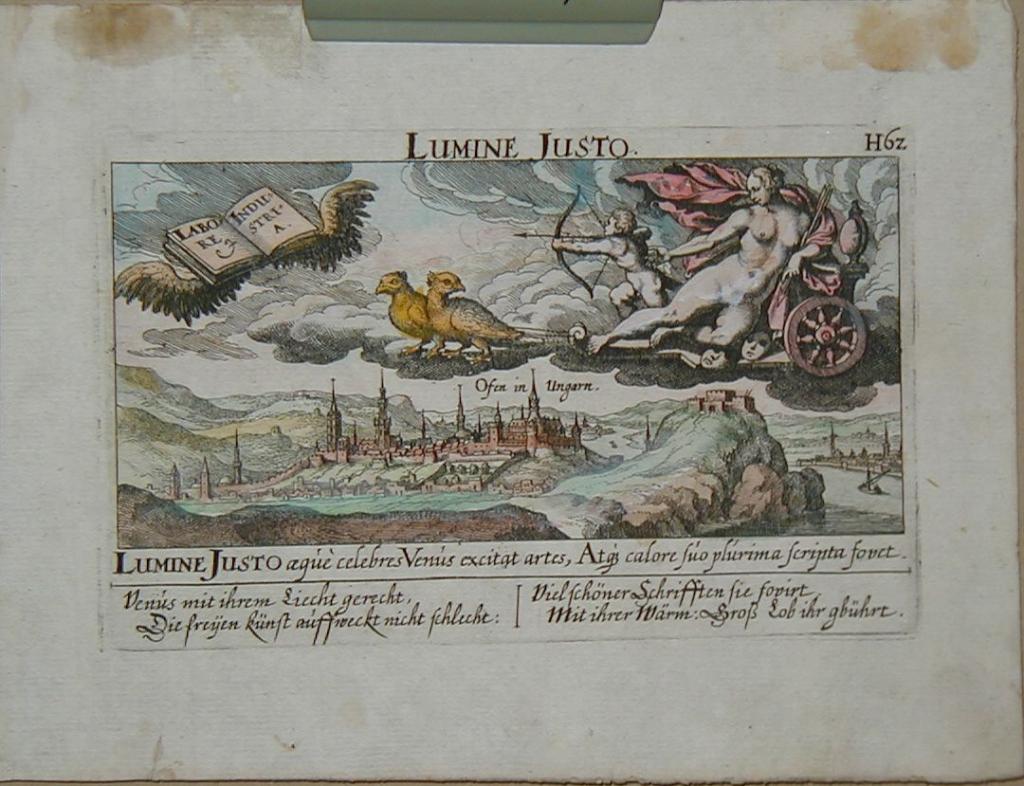 LUMINE JUSTO.
H62
LABO INDU
RE & STRI
A.
Ofen in Ungarn.
LUMINE JUSTO æquè celebres Venus excitat artes, Atq; calore suo plurima scripta fovet.
Venus mit ihrem Liecht gerecht,
Die freyen künst auffweckt nicht schlecht:
Viel schöner Schrifften sie fovirt,
Mit ihrer Wärm: Groß Lob ihr gbührt.